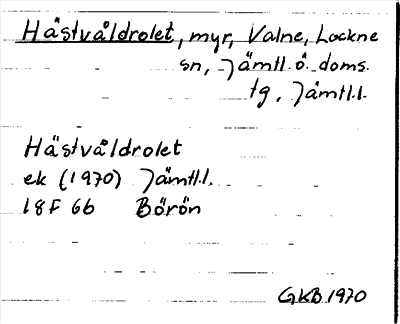 Hästvåldrolet, myr, Valne, Lockne
sn, Jämtl. ö. doms.
tg, Jämtl.l.
Hästvåldrolet
ek (1970) Jämtl.l.
18F 6b Börön
GKB 1970